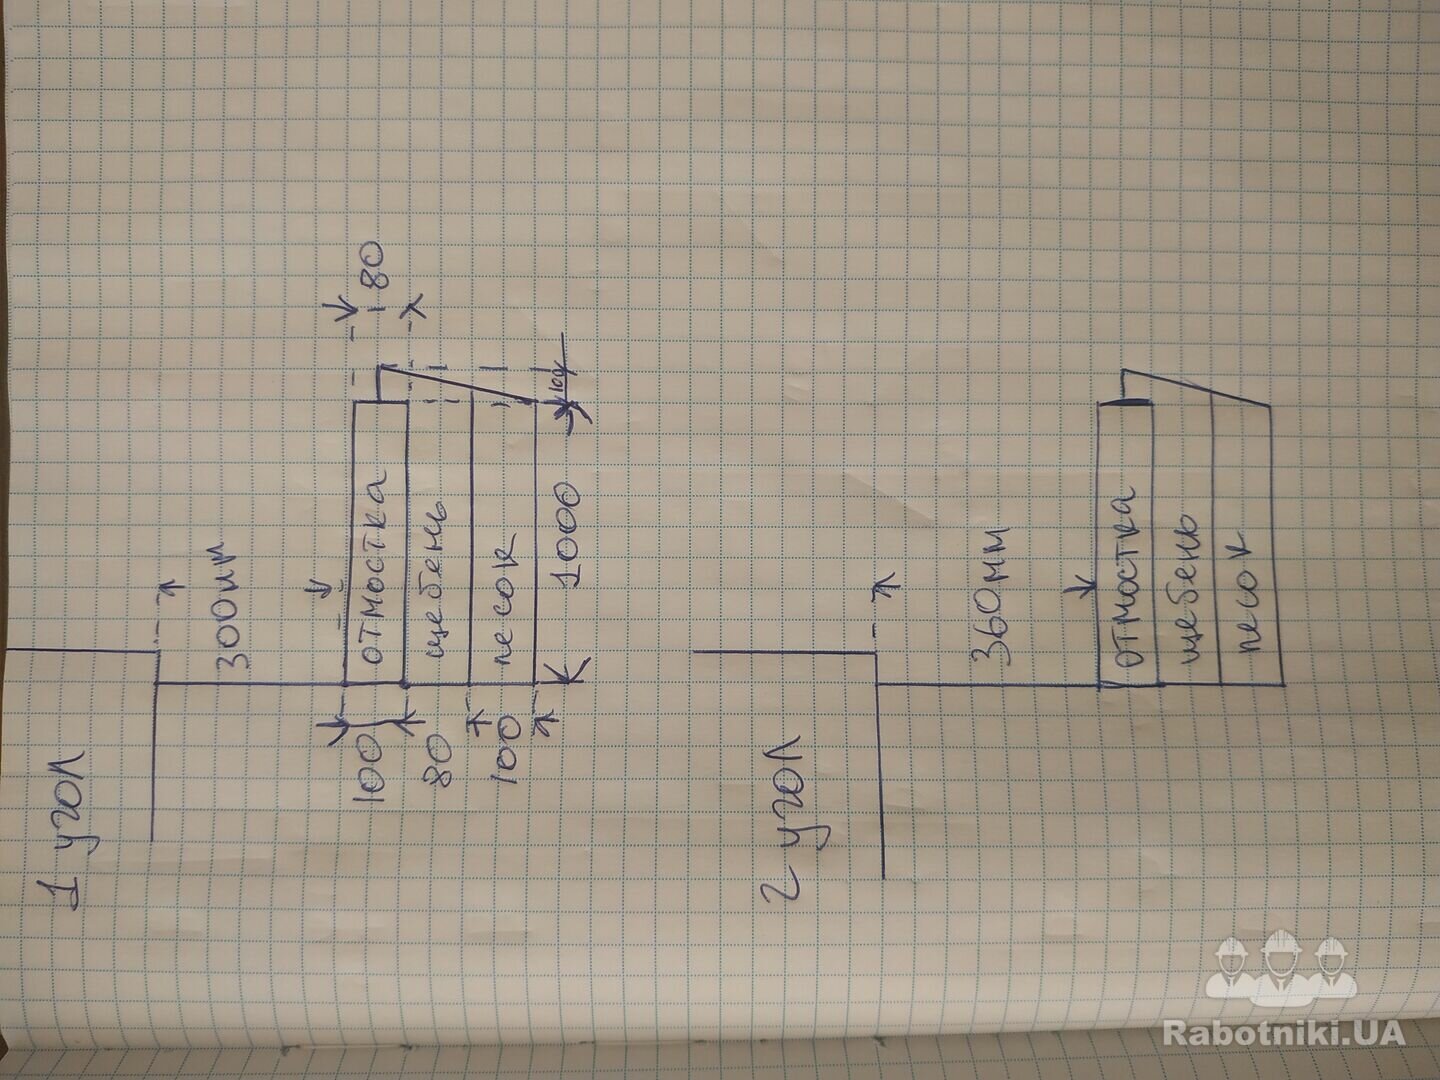 1 угол
300мм
80
100
отмостка
80
щебень
100
песок
100
1000
2 угол
360мм
отмостка
щебень
песок
Rabotniki.UA